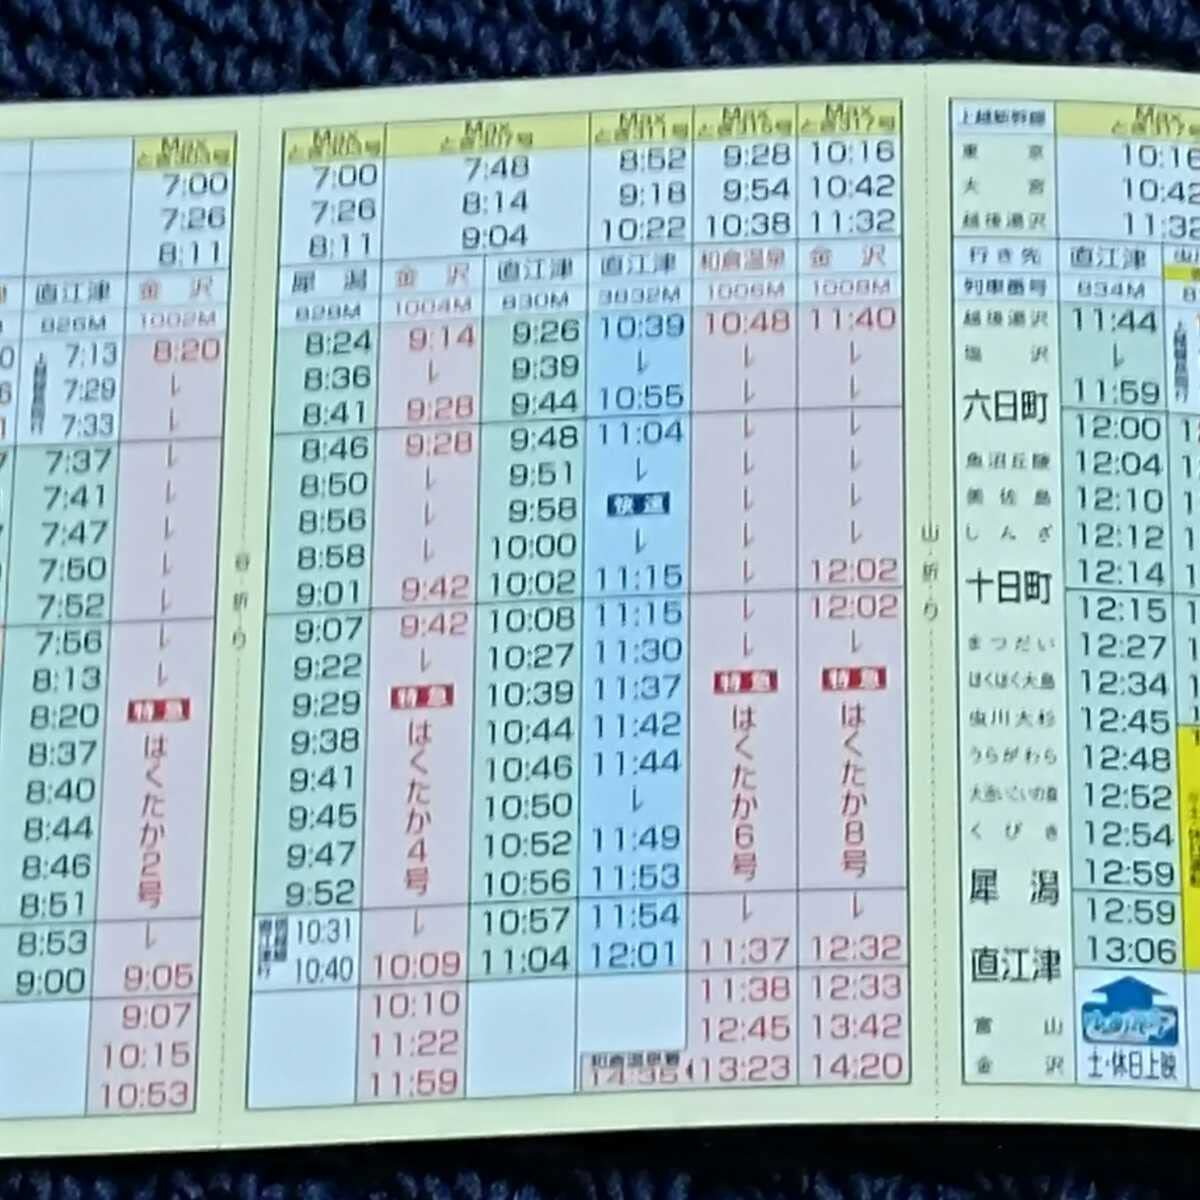 Max とき303号
7:00
7:26
8:11
直江津 金沢
826M 1002M
7:13 8:20
7:29
7:33
7:37
7:41
7:47
7:50
7:52
7:56
8:13
8:20 特急
8:37 はくたか2号
8:40
8:44
8:46
8:51
8:53
9:00 9:05
9:07
10:15
10:53
谷折り
Max とき303号 Max とき307号 Max とき311号 Max とき315号 Max とき317号
7:00 7:48 8:52 9:28 10:16
7:26 8:14 9:18 9:54 10:42
8:11 9:04 10:22 10:38 11:32
犀潟 金沢 直江津 直江津 和倉温泉 金沢
828M 1004M 830M 3832M 1006M 1008M
8:24 9:14 9:26 10:39 10:48 11:40
8:36 9:39
8:41 9:28 9:44 10:55
8:46 9:28 9:48 11:04
8:50 9:51
8:56 9:58 快速
8:58 10:00
9:01 9:42 10:02 11:15 12:02
9:07 9:42 10:08 11:15 12:02
9:22 10:27 11:30
9:29 特急 10:39 11:37 特急 特急
9:38 はくたか4号 10:44 11:42 はくたか6号 はくたか8号
9:41 10:46 11:44
9:45 10:50
9:47 10:52 11:49
9:52 10:56 11:53
10:31 10:57 11:54
10:40 10:09 11:04 12:01 11:37 12:32
10:10 11:38 12:33
11:22 12:45 13:42
11:59 和倉温泉着 14:35 13:23 14:20
山折り
上越新幹線 Max とき317号
東京 10:16
大宮 10:42
越後湯沢 11:32
行き先 直江津
列車番号 834M
越後湯沢 11:44
塩沢
六日町 11:59
12:00
魚沼丘陵 12:04
美佐島 12:10
しんざ 12:12
十日町 12:14
12:15
まつだい 12:27
ほくほく大島 12:34
虫川大杉 12:45
うらがわら 12:48
大池いこいの森 12:52
くびき 12:54
犀潟 12:59
12:59
直江津 13:06
富山
金沢
土・休日上映